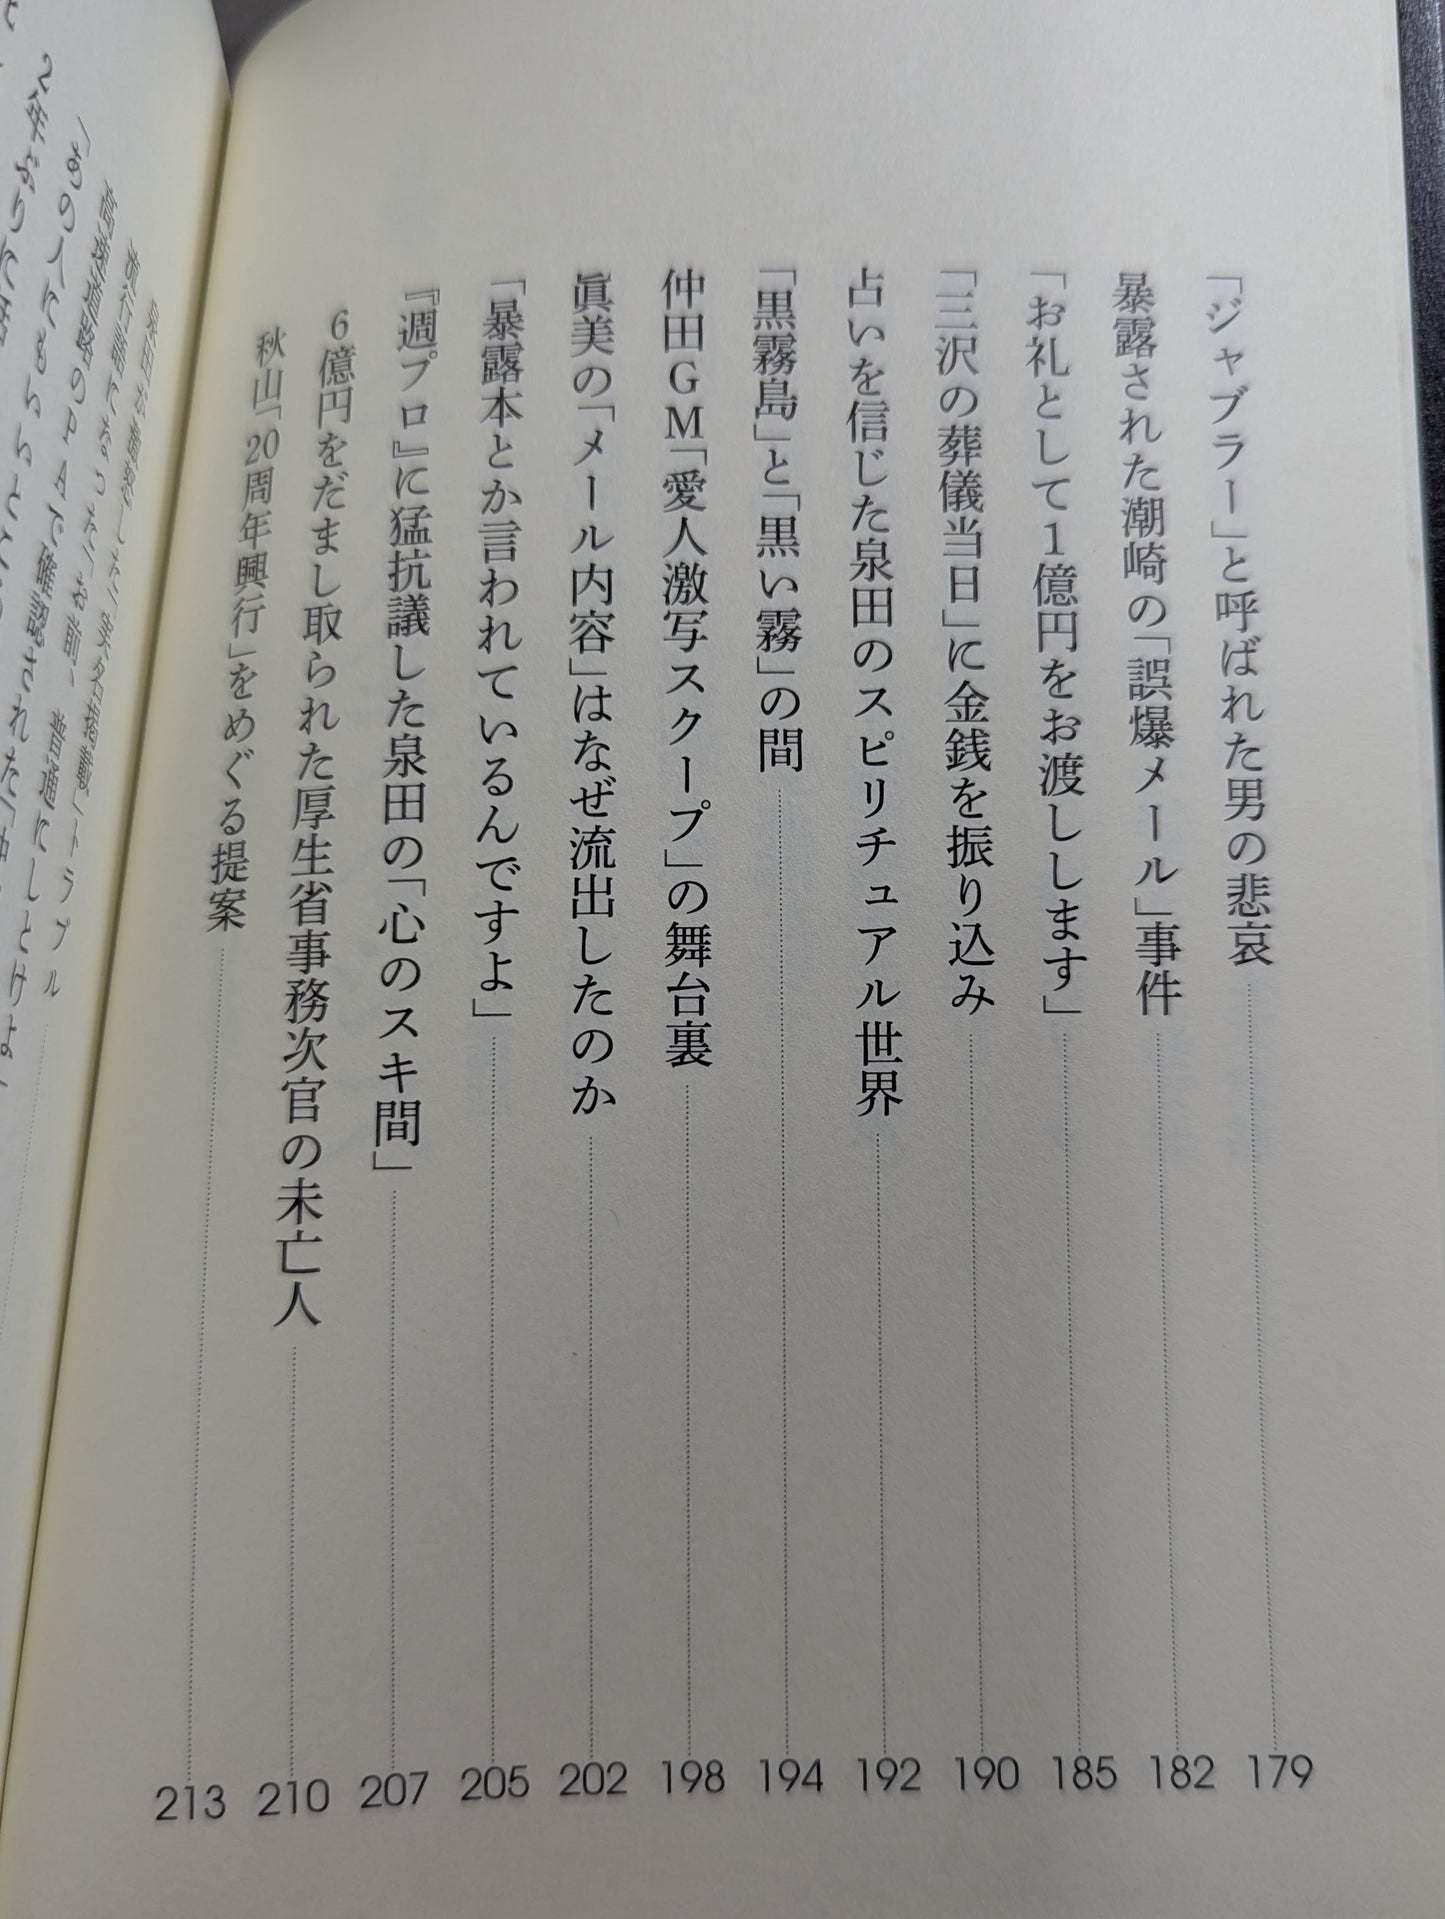 「ジャブラー」と呼ばれた男の悲哀 179
暴露された潮崎の「誤爆メール」事件 182
「お礼として1億円をお渡しします」 185
「三沢の葬儀当日」に金銭を振り込み 190
占いを信じた泉田のスピリチュアル世界 192
「黒霧島」と「黒い霧」の間 194
仲田GM「愛人激写スクープ」の舞台裏 198
眞美の「メール内容」はなぜ流出したのか 202
「暴露本とか言われているんですよ」 205
『週プロ』に猛抗議した泉田の「心のスキ間」 207
6億円をだまし取られた厚生省事務次官の未亡人 210
秋山「20周年興行」をめぐる提案 213
「実名掲載」トラブル
普通にしとけよ」
高速道路のPAで確認された
「あの人にもいいとこ
2年ぶりに